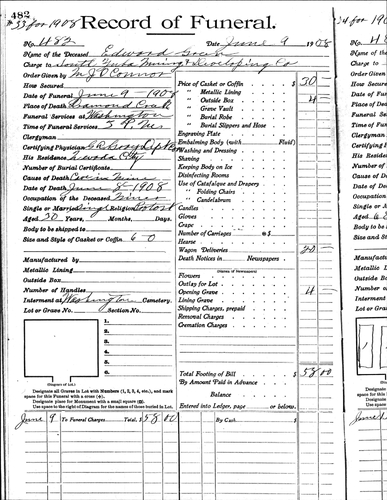 482
# 33 for 1908
Record of Funeral.
No. 482 Date June 9 1908
Name of the Deceased Edward
Charge to South Yuba Mining & Developing Co
Order Given by M J O'Connor
How Secured
Date of Funeral June 9 - 190
Place of Death Diamond Creek
Funeral Services at Washington
Time of Funeral Services 5 P.M.
Clergyman
Certifying Physician
His Residence Nevada City
Number of Burial Certificate
Cause of Death Cave in Mine
Date of Death June 8 - 1908
Occupation of the Deceased Miner
Single or Married Single Religion
Aged 30 Years, Months, Days.
Body to be shipped to
Size and Style of Casket or Coffin 6 0
Manufactured by
Metallic Lining
Outside Box
Number of Handles
Interment at Washington Cemetery.
Lot or Grave No. Section No.
1.
2.
3.
4.
5.
6.
(Diagram of Lot.)
Designate all Graves in Lot with Numbers (1, 2, 3, 4, etc.), and mark
space for this Funeral with a cross (+).
Designate place for Monument with a small square (□).
Use space to the right of Diagram for the names of those buried in Lot.
Price of Casket or Coffin $ 30
" Metallic Lining
" Outside Box 4
" Grave Vault
" Burial Robe
" Burial Slippers and Hose
Engraving Plate
Embalming Body (with Fluid)
Washing and Dressing
Shaving
Keeping Body on Ice
Disinfecting Rooms
Use of Catafalque and Drapery
" Folding Chairs
" Candelabrum
Candles
Gloves
Crape
Number of Carriages @ $
Hearse
Wagon Deliveries 20
Death Notices in Newspapers
Flowers
Outlay for Lot
Opening Grave 4
Lining Grave
Shipping Charges, prepaid
Removal Charges
Cremation Charges
Total Footing of Bill $ 58 00
By Amount Paid in Advance
Balance
Entered into Ledger, page or below.
June 9 To Funeral Charges Total, $ 58 00 By Cash $
34 for 190
No.
Name of
Charge to
Order Gi
How Sec
Date of F
Place of
Funeral S
Time of F
Clergyma
Certifying
His Resid
Number o
Cause of
Date of D
Occupatio
Single or
Aged
Body to b
Size and S
Manufactu
Metallic L
Outside B
Number o
Interment
Lot or Gra
Designa
space for
Design
Use spac